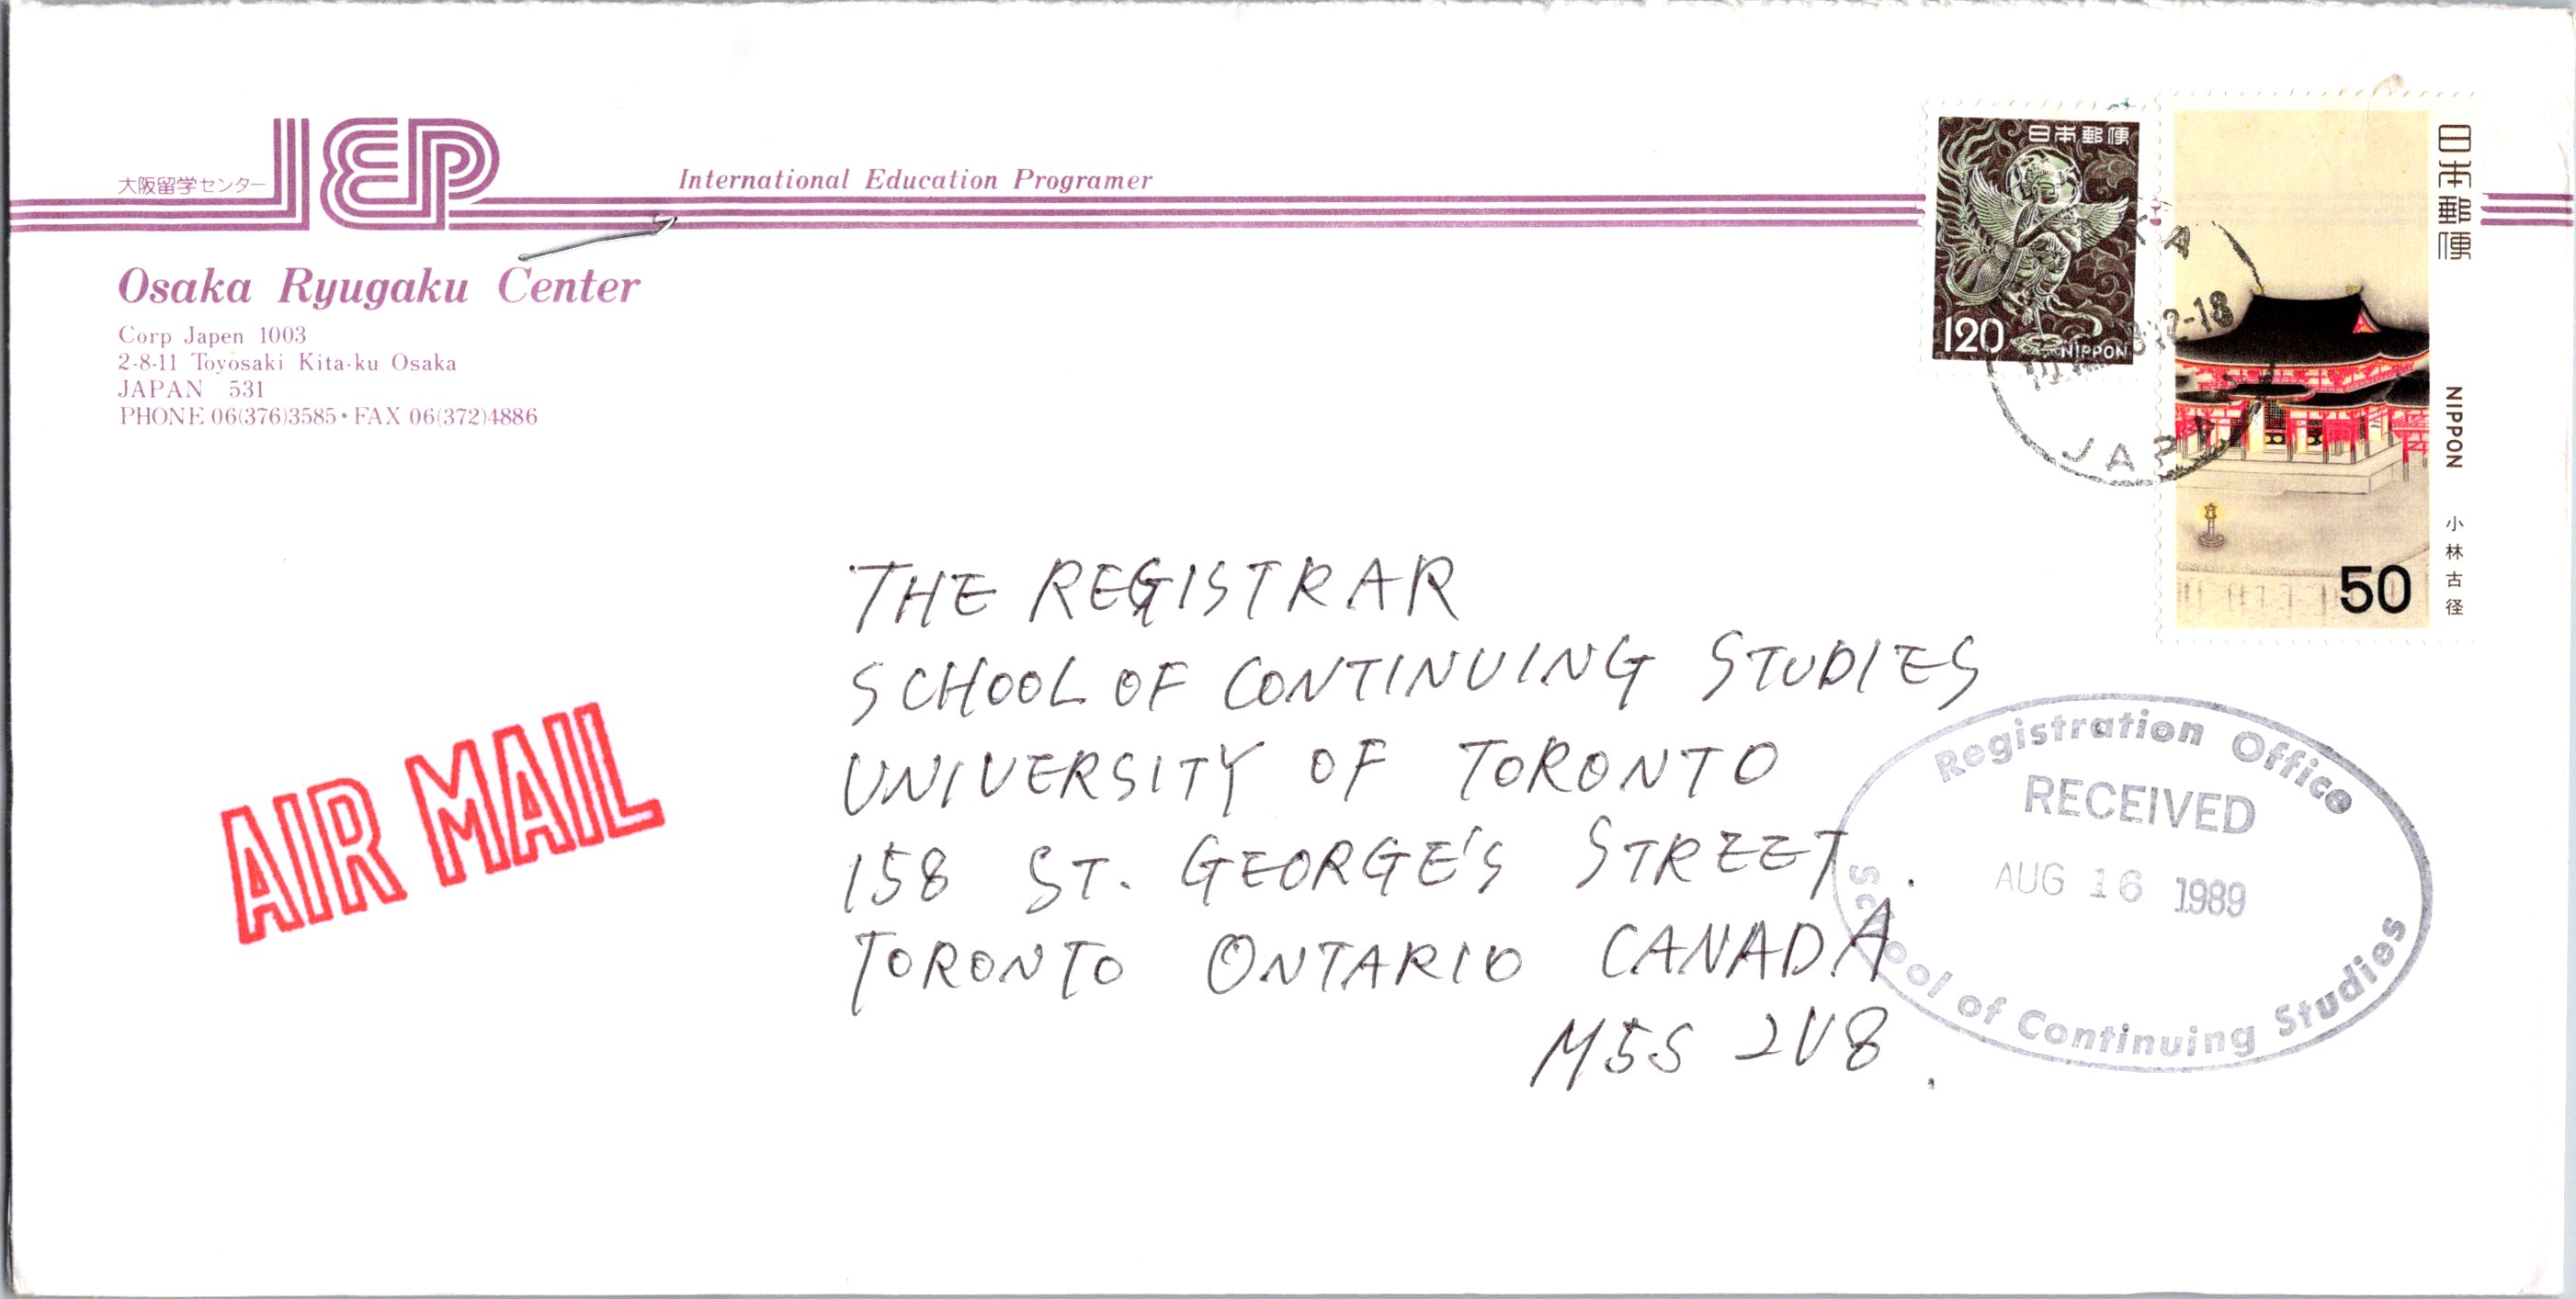 大阪留学センター IEP
International Education Programer
Osaka Ryugaku Center
Corp Japen 1003
2-8-11 Toyosaki Kita-ku Osaka
JAPAN 531
PHONE 06(376)3585・FAX 06(372)4886
日本郵便
120
NIPPON
日本郵便
NIPPON
小林古径
50
12-18
AIR MAIL
THE REGISTRAR
SCHOOL OF CONTINUING STUDIES
UNIVERSITY OF TORONTO
158 ST. GEORGE'S STREET.
TORONTO ONTARIO CANADA
M5S 2V8.
Registration Office
RECEIVED
AUG 16 1989
School of Continuing Studies